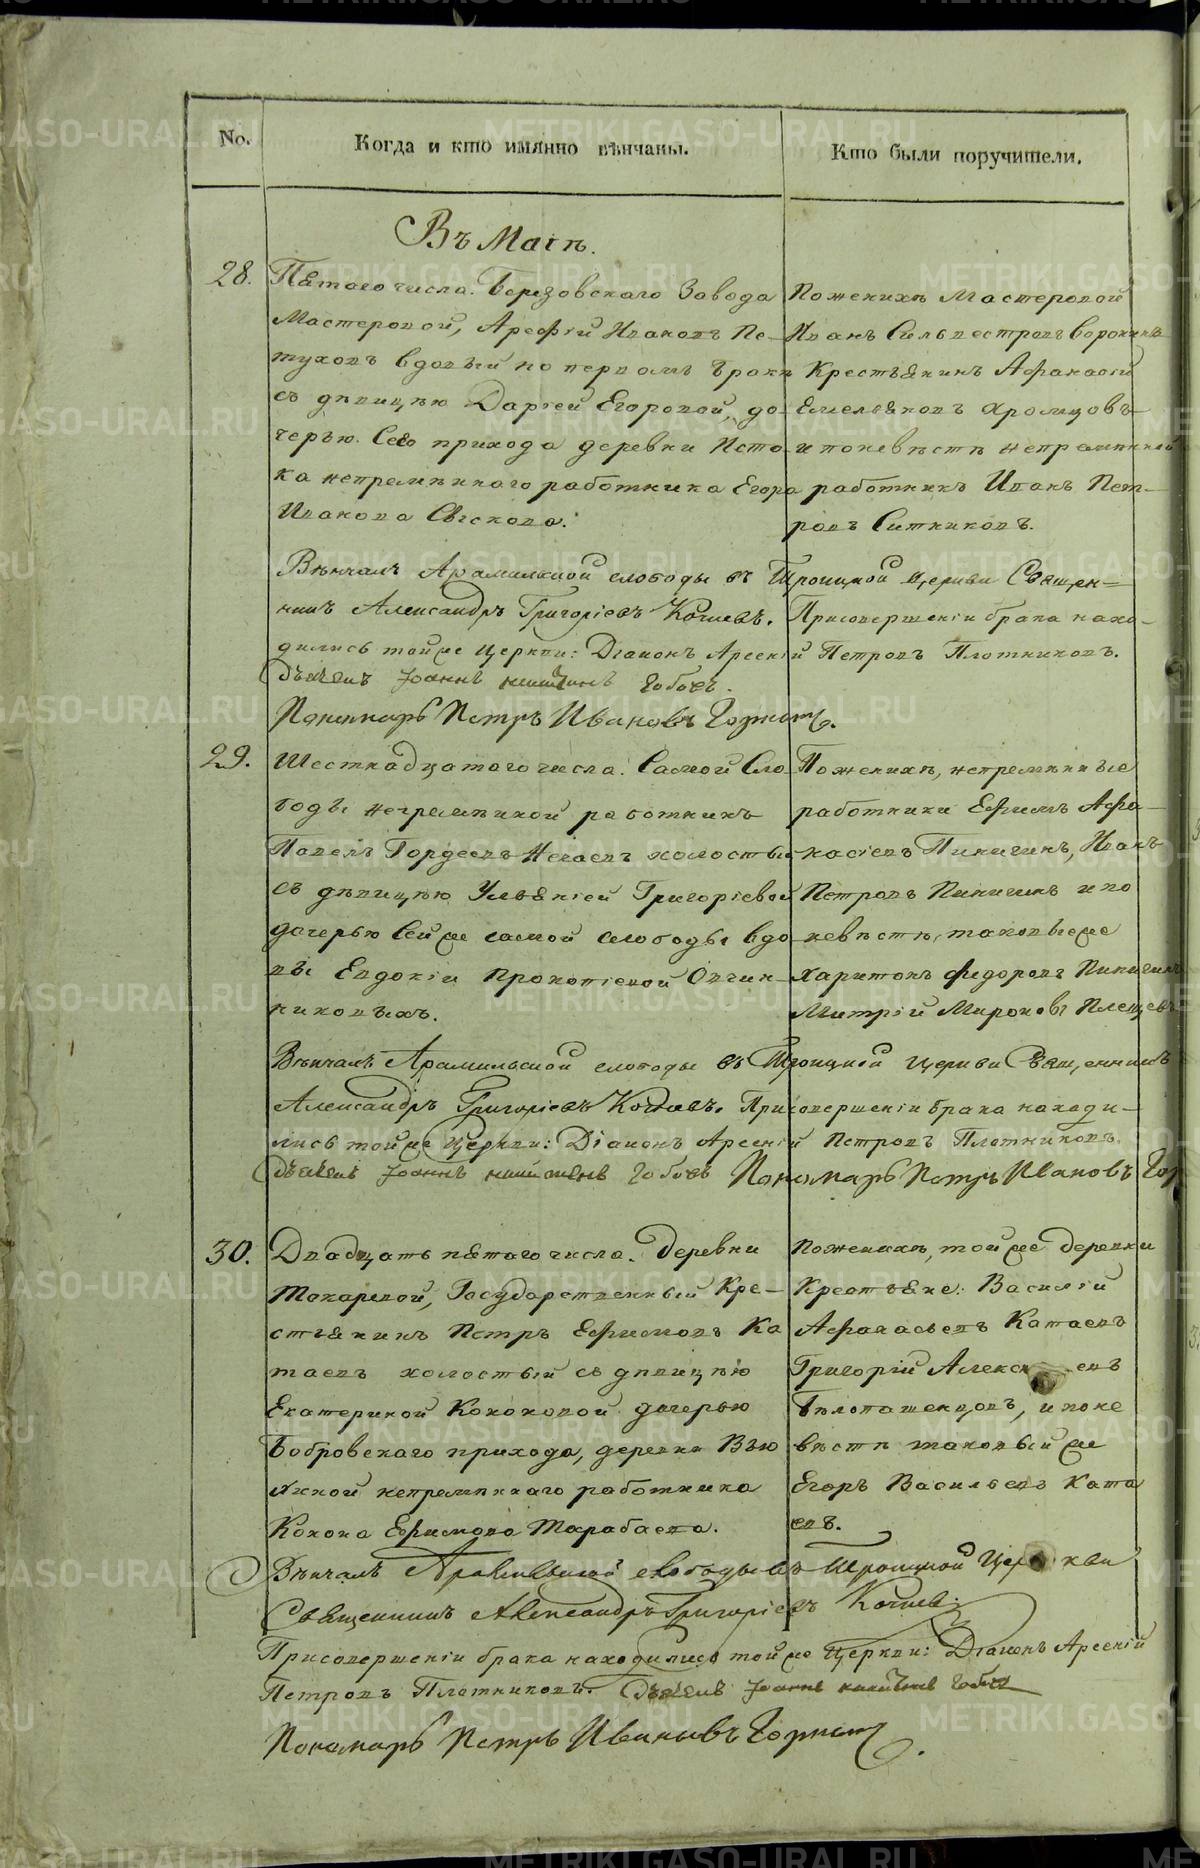 No.
Когда и кто имянно вѣнчаны.
Кто были поручители.
Въ Маіѣ.
28.
Пятаго числа. Березовскаго Завода
Мастеровой, Арефій Ивановъ Пе-
туховъ вдовый по первомъ бракѣ
съ дѣвицѣю Дарiей Егоровой, до-
черью. Сего прихода деревни Исто-
ка непремѣннаго работника Егора
Иванова
Поженихѣ Мастеровой
Иванъ Сильвестровъ Воронинъ
Крестьянинъ Афанасій
Емельяновъ Хромцовъ
и поневѣстѣ непремѣнной
работникъ Иванъ Пет-
ровъ Ситниковъ.
Вѣнчалъ Арамилской слободы въ Троицкой Церкви Священ-
никъ Александръ Григоріевъ Присовершеніи брака нахо-
дились тойже Церкви: Діаконъ Арсеній Петровъ Плотниковъ.
Дьячекъ Іоаннъ
Пономарь Петръ Ивановъ
29.
Шестнадцатаго числа. Самой Сло
боды непремѣнной работникъ
Павелъ Гордеевъ холостый
съ дѣвицѣю Ульяніей Григоріевой
дочерью Сейже самой слободы вдо
вы Евдокіи Прокопіевой Овчин-
никовыхъ.
Поженихѣ, непремѣнные
работники Ефимъ Афа-
насіевъ Пиничинъ, Иванъ
Петровъ Пиничинъ и по
невѣстѣ, таковыеже
Харитонъ Федоровъ Пиничинъ
Митрій Мироновъ
Вѣнчалъ Арамильской слободы въ Троицкой Церкви Священникъ
Александръ Григоріевъ Присовершеніи брака находи-
лись тойже Церкви: Діаконъ Арсеній Петровъ Плотниковъ.
Дьячекъ Іоаннъ Пономарь Петръ Ивановъ
30.
Двадцать пятаго числа. Деревни
Токаревой, Государственный Кре-
стьянинъ Петръ Ефимовъ Ка
таевъ холостый съ дѣвицѣю
Екатериной Кононовой дочерью
Бобровскаго прихода, деревни Вью
хиной непремѣннаго работника
Конона Ефимова Тарабаева.
Поженихѣ, тойже деревни
Крестьяне: Василій
Афанасьевъ Катаевъ
Григорій
Бѣлопашенцовъ, и поне
вѣстѣ таковый же
Егоръ Васильевъ Ката
евъ.
Вѣнчалъ Арамильской слободы въ Троицкой Церкви
Священникъ Александръ Григоріевъ
Присовершеніи брака находились тойже Церкви: Діаконъ Арсеній
Петровъ Плотниковъ. Дьячекъ Іоаннъ
Пономарь Петръ Ивановъ
METRIKI.GASO-URAL.RU